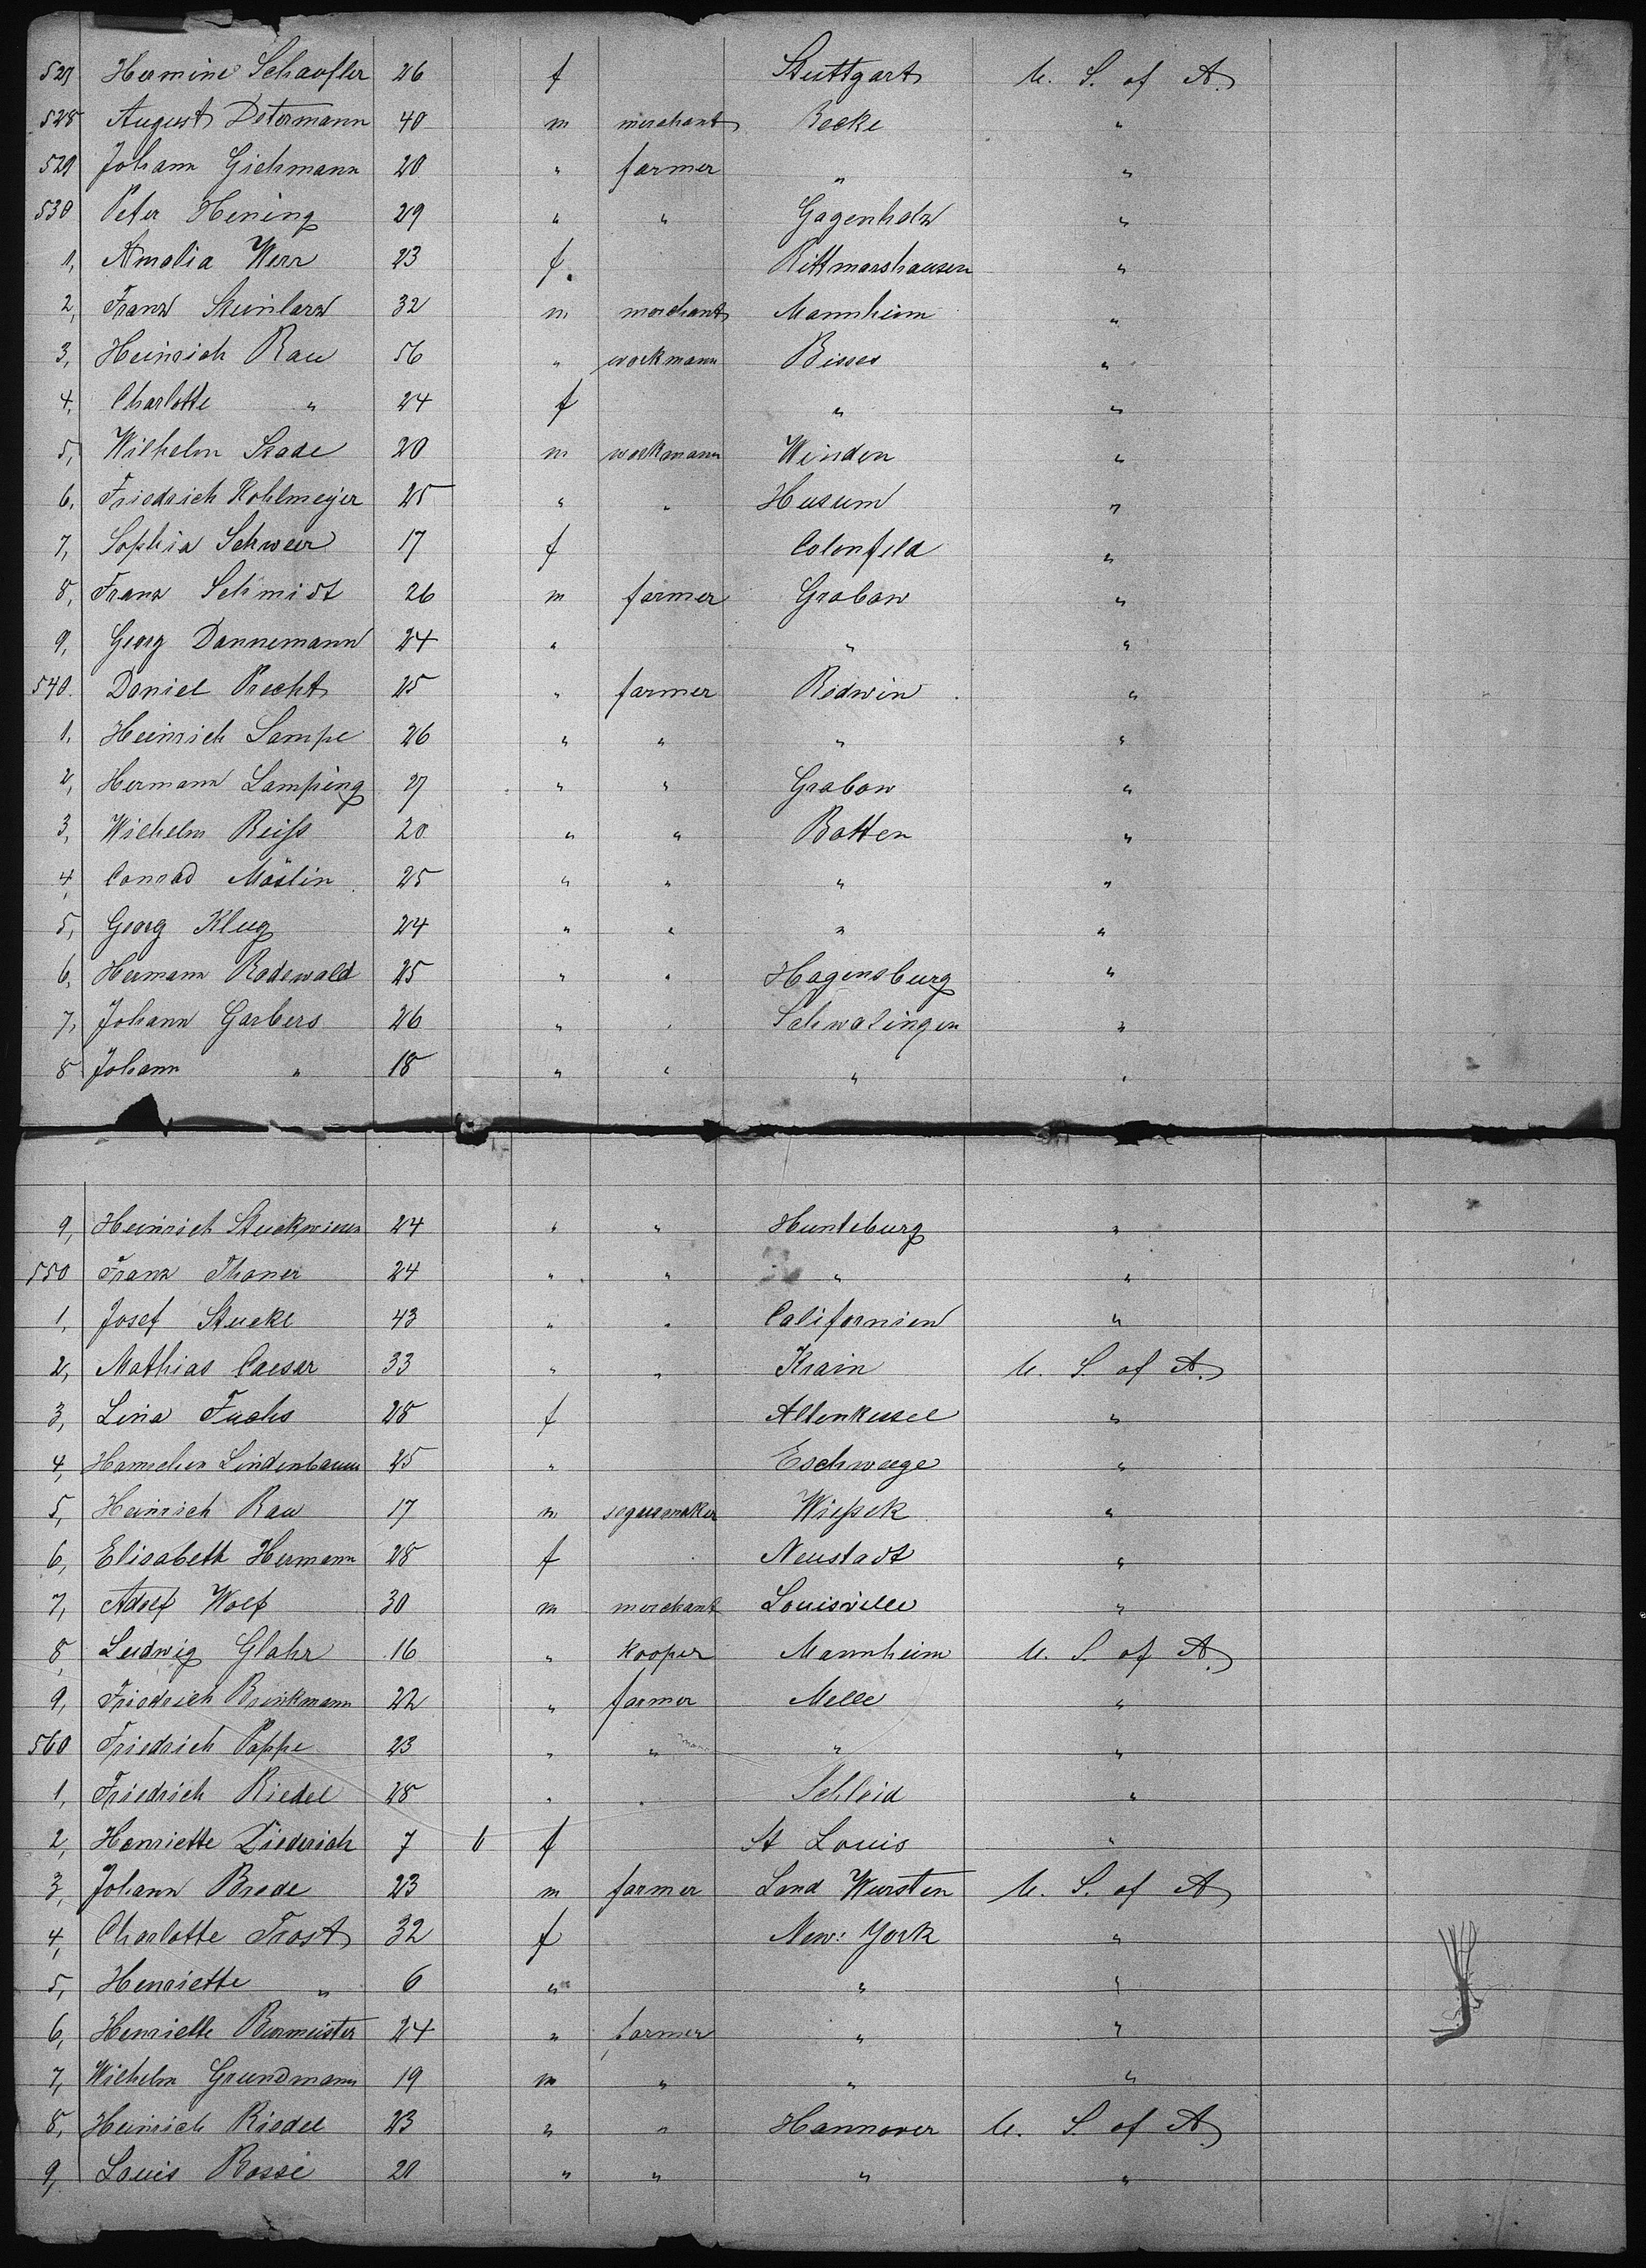 527 Hermine Schaufler 26 f Stuttgart U. S. of A.
528 August Determann 40 m merchant Recke "
529 Johann Gichmann 20 " farmer " "
530 Peter Hening 29 " " Gagenholz "
1, Amalia Werr 23 f. Rittmarshausen "
2, Franz Steinlarz 32 m merchant Mannheim "
3, Heinrich Rau 56 " workmann Bisses "
4, Charlotte " 24 f " "
5, Wilhelm Stade 20 m workmann Winden "
6, Friedrich Kohlmeyer 25 " " Husum "
7, Sophia Schweer 17 f Colenfeld "
8, Franz Schmidt 26 m farmer Grabow "
9, Georg Dannemann 24 " " "
540. Daniel Precht 25 " farmer Redwin "
1. Heinrich Lampe 26 " " " "
2, Hermann Lamping 27 " " Grabow "
3, Wilhelm Reiss 20 " " Batten "
4, Conrad Möslin 25 " " " "
5, Georg Klug 24 " " " "
6, Hermann Rodewald 25 " " Hagensburg "
7, Johann Garbers 26 " " Schwalingen "
8 Johann " 18 " " " "
9, Heinrich 24 " " Hunteburg "
550 Franz Thaner 24 " " " "
1, Josef Stucke 43 " " Californien "
2, Mathias Caesar 33 " " Krain U. S. of A.
3, Lina Fuchs 28 f Altenkusel "
4, Hannchen Lindenbaum 25 " Eschwege "
5, Heinrich Rau 17 m segarmaker Wiessek "
6, Elisabeth Hermann 28 f Neustadt "
7, Adolf Wolf 30 m merchant Louisville "
8, Ludwig Glahr 16 " kooper Mannheim U. S. of A.
9, Friedrich Brinkmann 22 " farmer Melle "
560 Friedrich Poppe 23 " " " "
1, Friedrich Riedel 28 " " Schleid "
2, Henriette Diederich 7 6 f St Louis "
3, Johann Brede 23 m farmer Land Wursten U. S. of A.
4, Charlotte Frost 32 f New: York "
5, Henriette " 6 " " "
6, Henriette Burmeister 24 " farmer " "
7, Wilhelm Grundmann 19 m " " "
8, Heinrich Riedel 23 " " Hannover U. S. of A.
9, Louis Bosse 20 " " " "